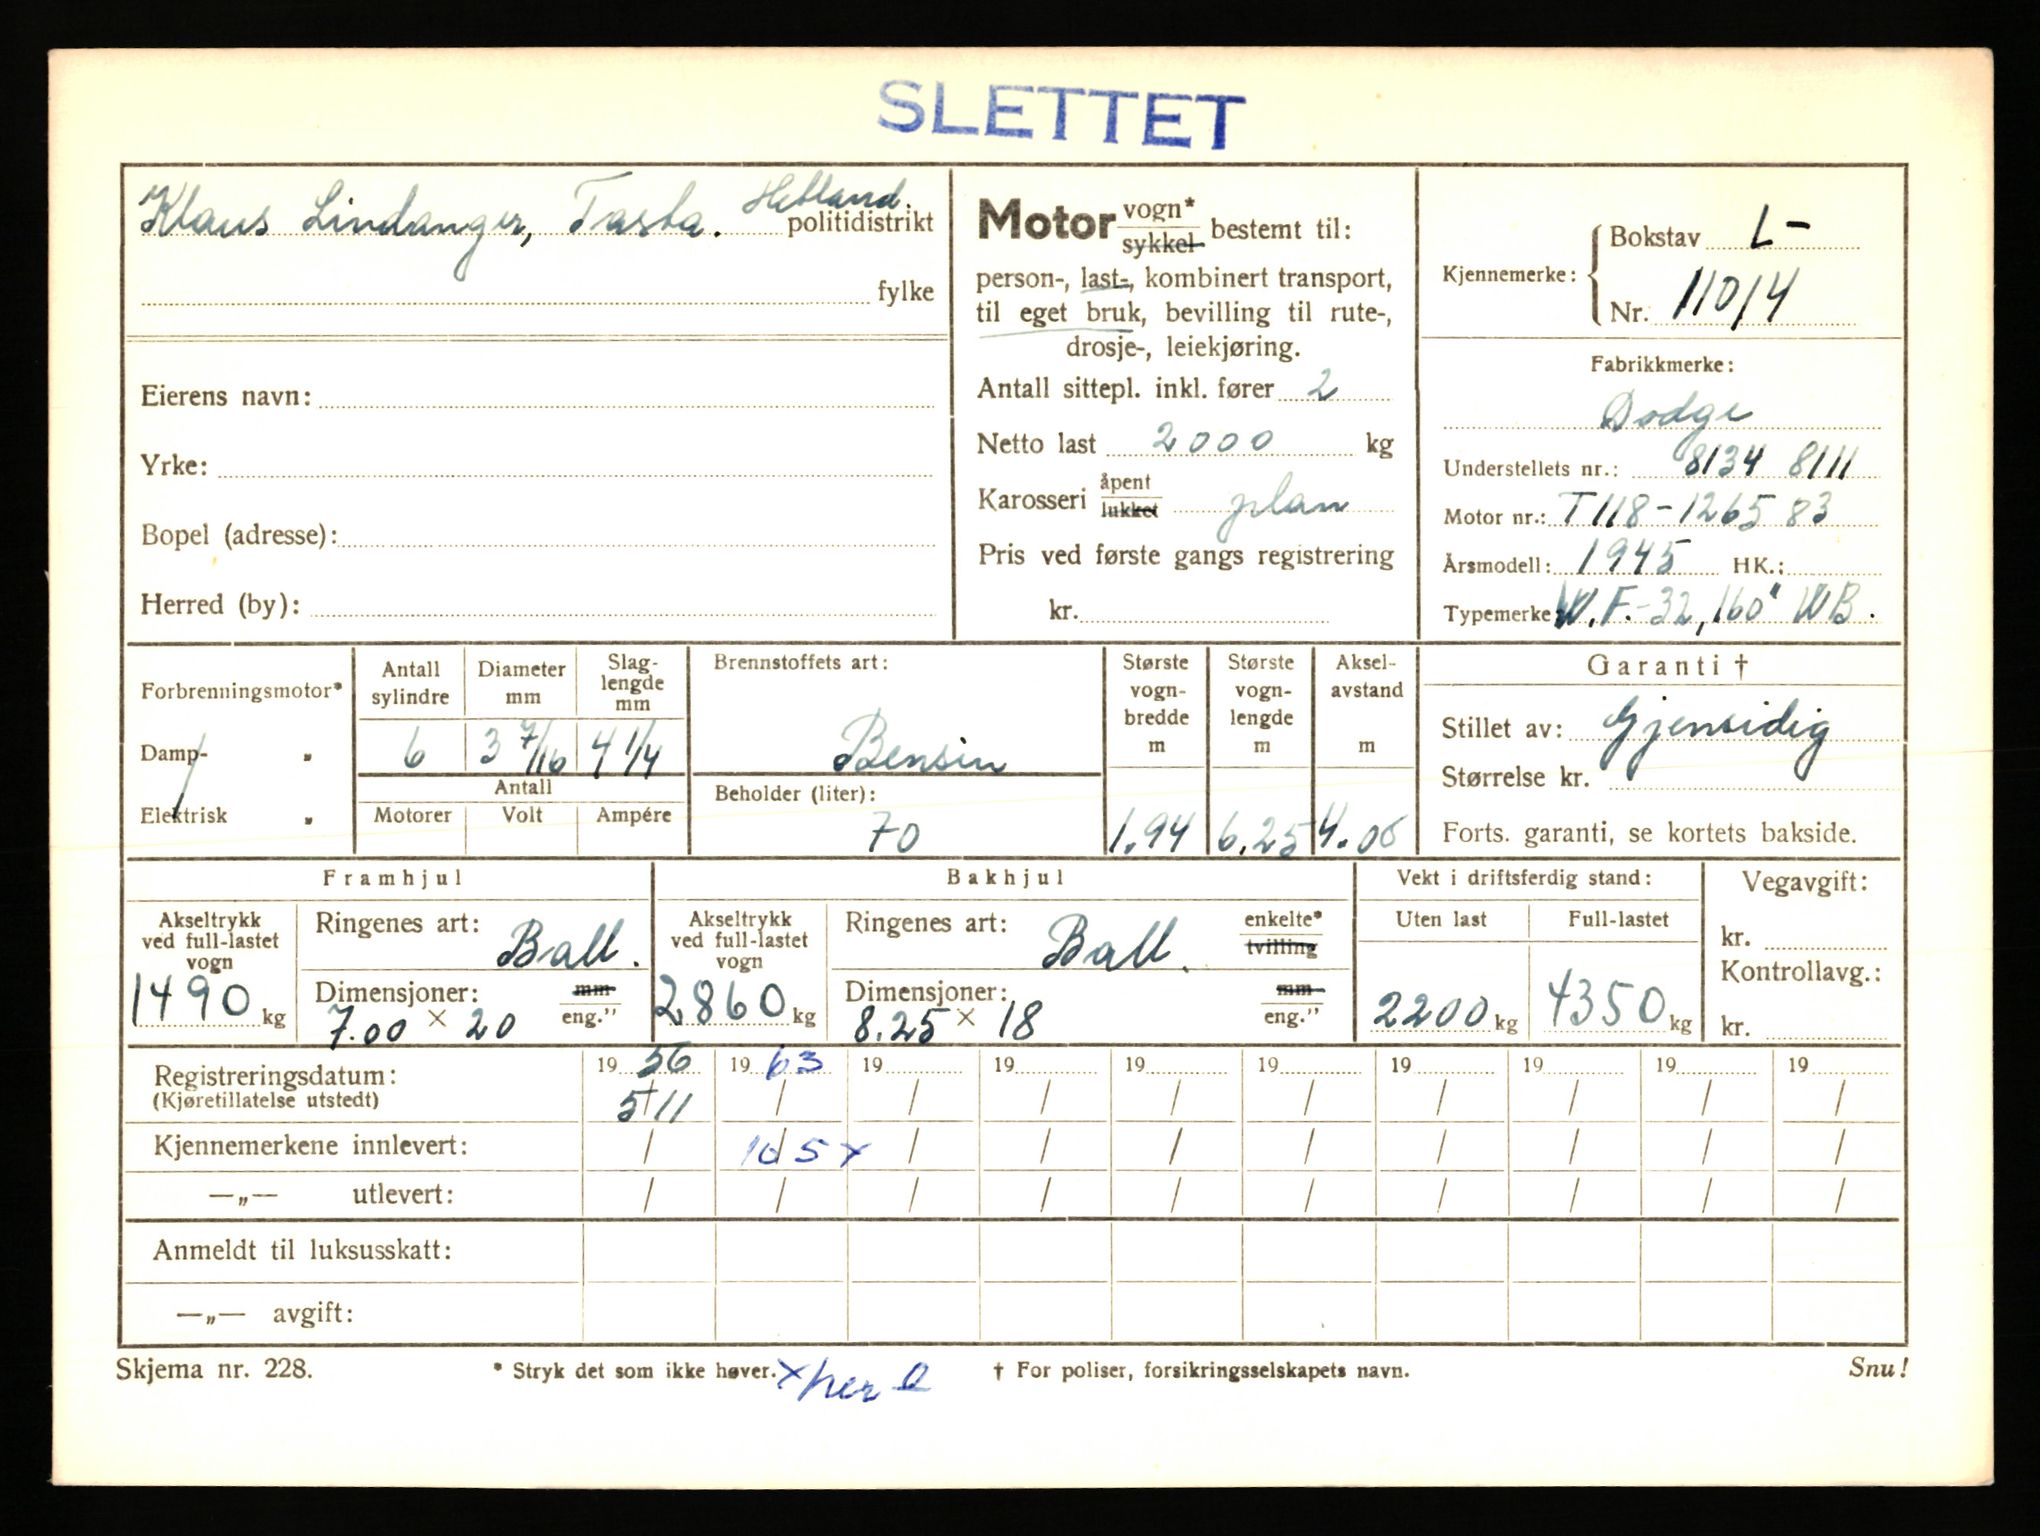 SLETTET
Klaus Lindanger, Tasta. Hetland politidistrikt
fylke
Eierens navn:
Yrke:
Bopel (adresse):
Herred (by):
Motor vogn* sykkel bestemt til:
person-, last-, kombinert transport,
til eget bruk, bevilling til rute-,
drosje-, leiekjøring.
Antall sittepl. inkl. fører 2
Netto last 2000 kg
Karosseri åpent lukket plan
Pris ved første gangs registrering
kr.
Kjennemerke: Bokstav L-
Nr. 11014
Fabrikkmerke:
Dodge
Understellets nr.: 8134 8111
Motor nr.: T118-126583
Årsmodell: 1945 HK.:
Typemerke: W.F.-32, 160" WB.
Forbrenningsmotor*
Damp- „
Elektrisk „
Antall sylindre 6
Diameter mm 3 7/16
Slaglengde mm 4 1/4
Antall
Motorer Volt Ampére
Brennstoffets art:
Bensin
Beholder (liter):
70
Største vognbredde m 1.94
Største vognlengde m 6.25
Akselavstand m 4.06
Garanti †
Stillet av: Gjensidig
Størrelse kr.
Forts. garanti, se kortets bakside.
Framhjul
Akseltrykk ved full-lastet vogn 1490 kg
Ringenes art: Ball.
Dimensjoner: mm eng."
7.00 × 20
Bakhjul
Akseltrykk ved full-lastet vogn 2860 kg
Ringenes art: Ball. enkelte* tvilling
Dimensjoner: mm eng."
8.25 × 18
Vekt i driftsferdig stand:
Uten last Full-lastet
2200 kg 4350 kg
Vegavgift:
kr.
Kontrollavg.:
kr.
Registreringsdatum: 19 56 19 63 19 19 19 19 19 19 19 19
(Kjøretillatelse utstedt) 5/11 / / / / / / / / /
Kjennemerkene innlevert: / 10/5 x / / / / / / / /
—„— utlevert: / / / / / / / / / /
Anmeldt til luksusskatt:
—„— avgift:
Skjema nr. 228. * Stryk det som ikke høver. x her † For poliser, forsikringsselskapets navn. Snu!